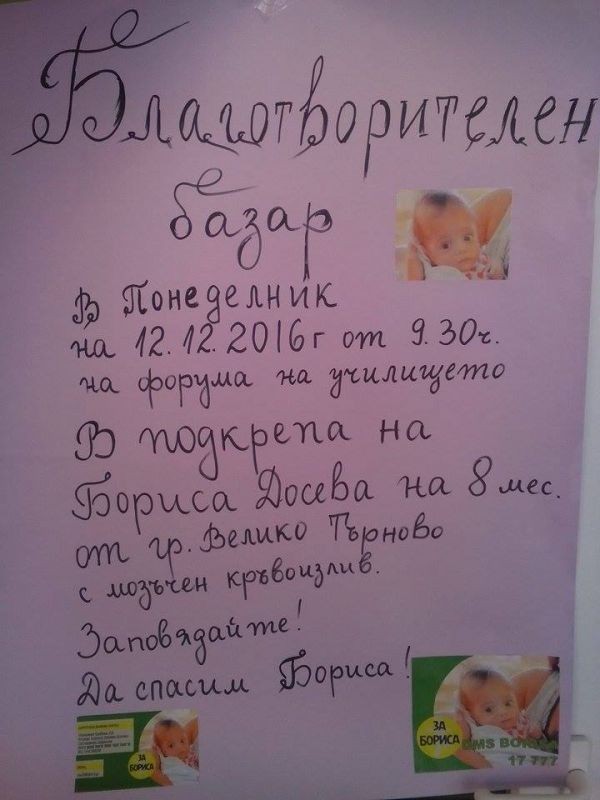 Благотворителен
базар
В Понеделник
на 12.12.2016г от 9.30ч.
на форума на училището
В подкрепа на
Бориса Досева на 8 мес.
от гр. Велико Търново
с мозъчен кръвоизлив.
Заповядайте!
Да спасим Бориса!
ЗА
БОРИСА
ЗА
БОРИСА
DMS BORISA
17 777